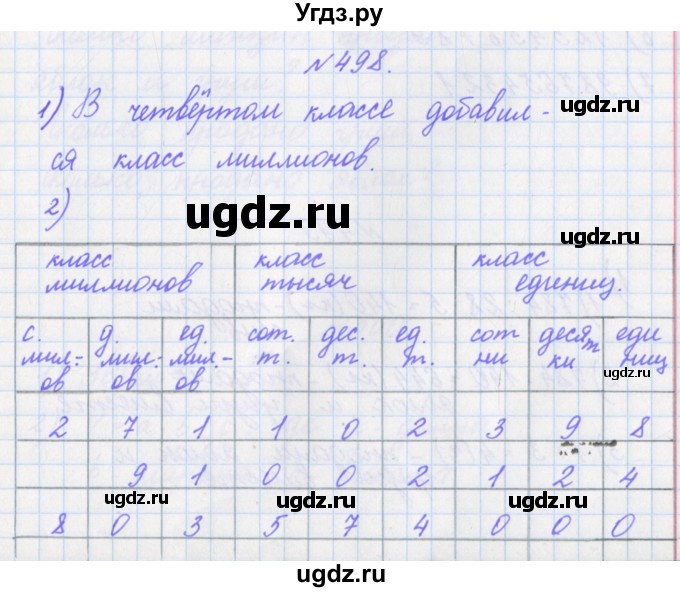 Угдз.ру
№498.
1) В четвёртом классе добавил-
ся класс миллионов.
2)
ugdz.ru
ugdz.ru
класс миллионов класс тысяч класс единиц.
с. мил-ов д. милл-ов ед. мил-ов сот. т. дес. т. ед. т. сотни десятки единиц
ugdz.ru
2 7 1 1 0 2 3 9 8
9 1 0 0 2 1 2 4
ugdz.ru ugdz.ru ugdz.ru
8 0 3 5 7 4 0 0 0
ugdz.ru